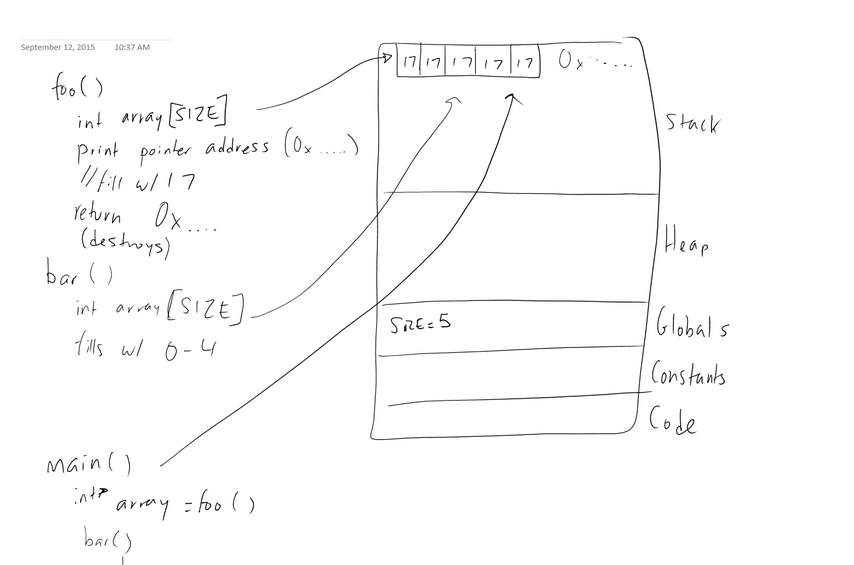 September 12, 2015 10:37 AM
foo()
int array[SIZE]
print pointer address (0x.....)
//fill w/ 17
return 0x....
(destroys)
bar()
int array[SIZE]
fills w/ 0-4
main()
int* array = foo()
bar()
17 17 17 17 17 0x......
Stack
Heap
SIZE=5
Globals
Constants
Code